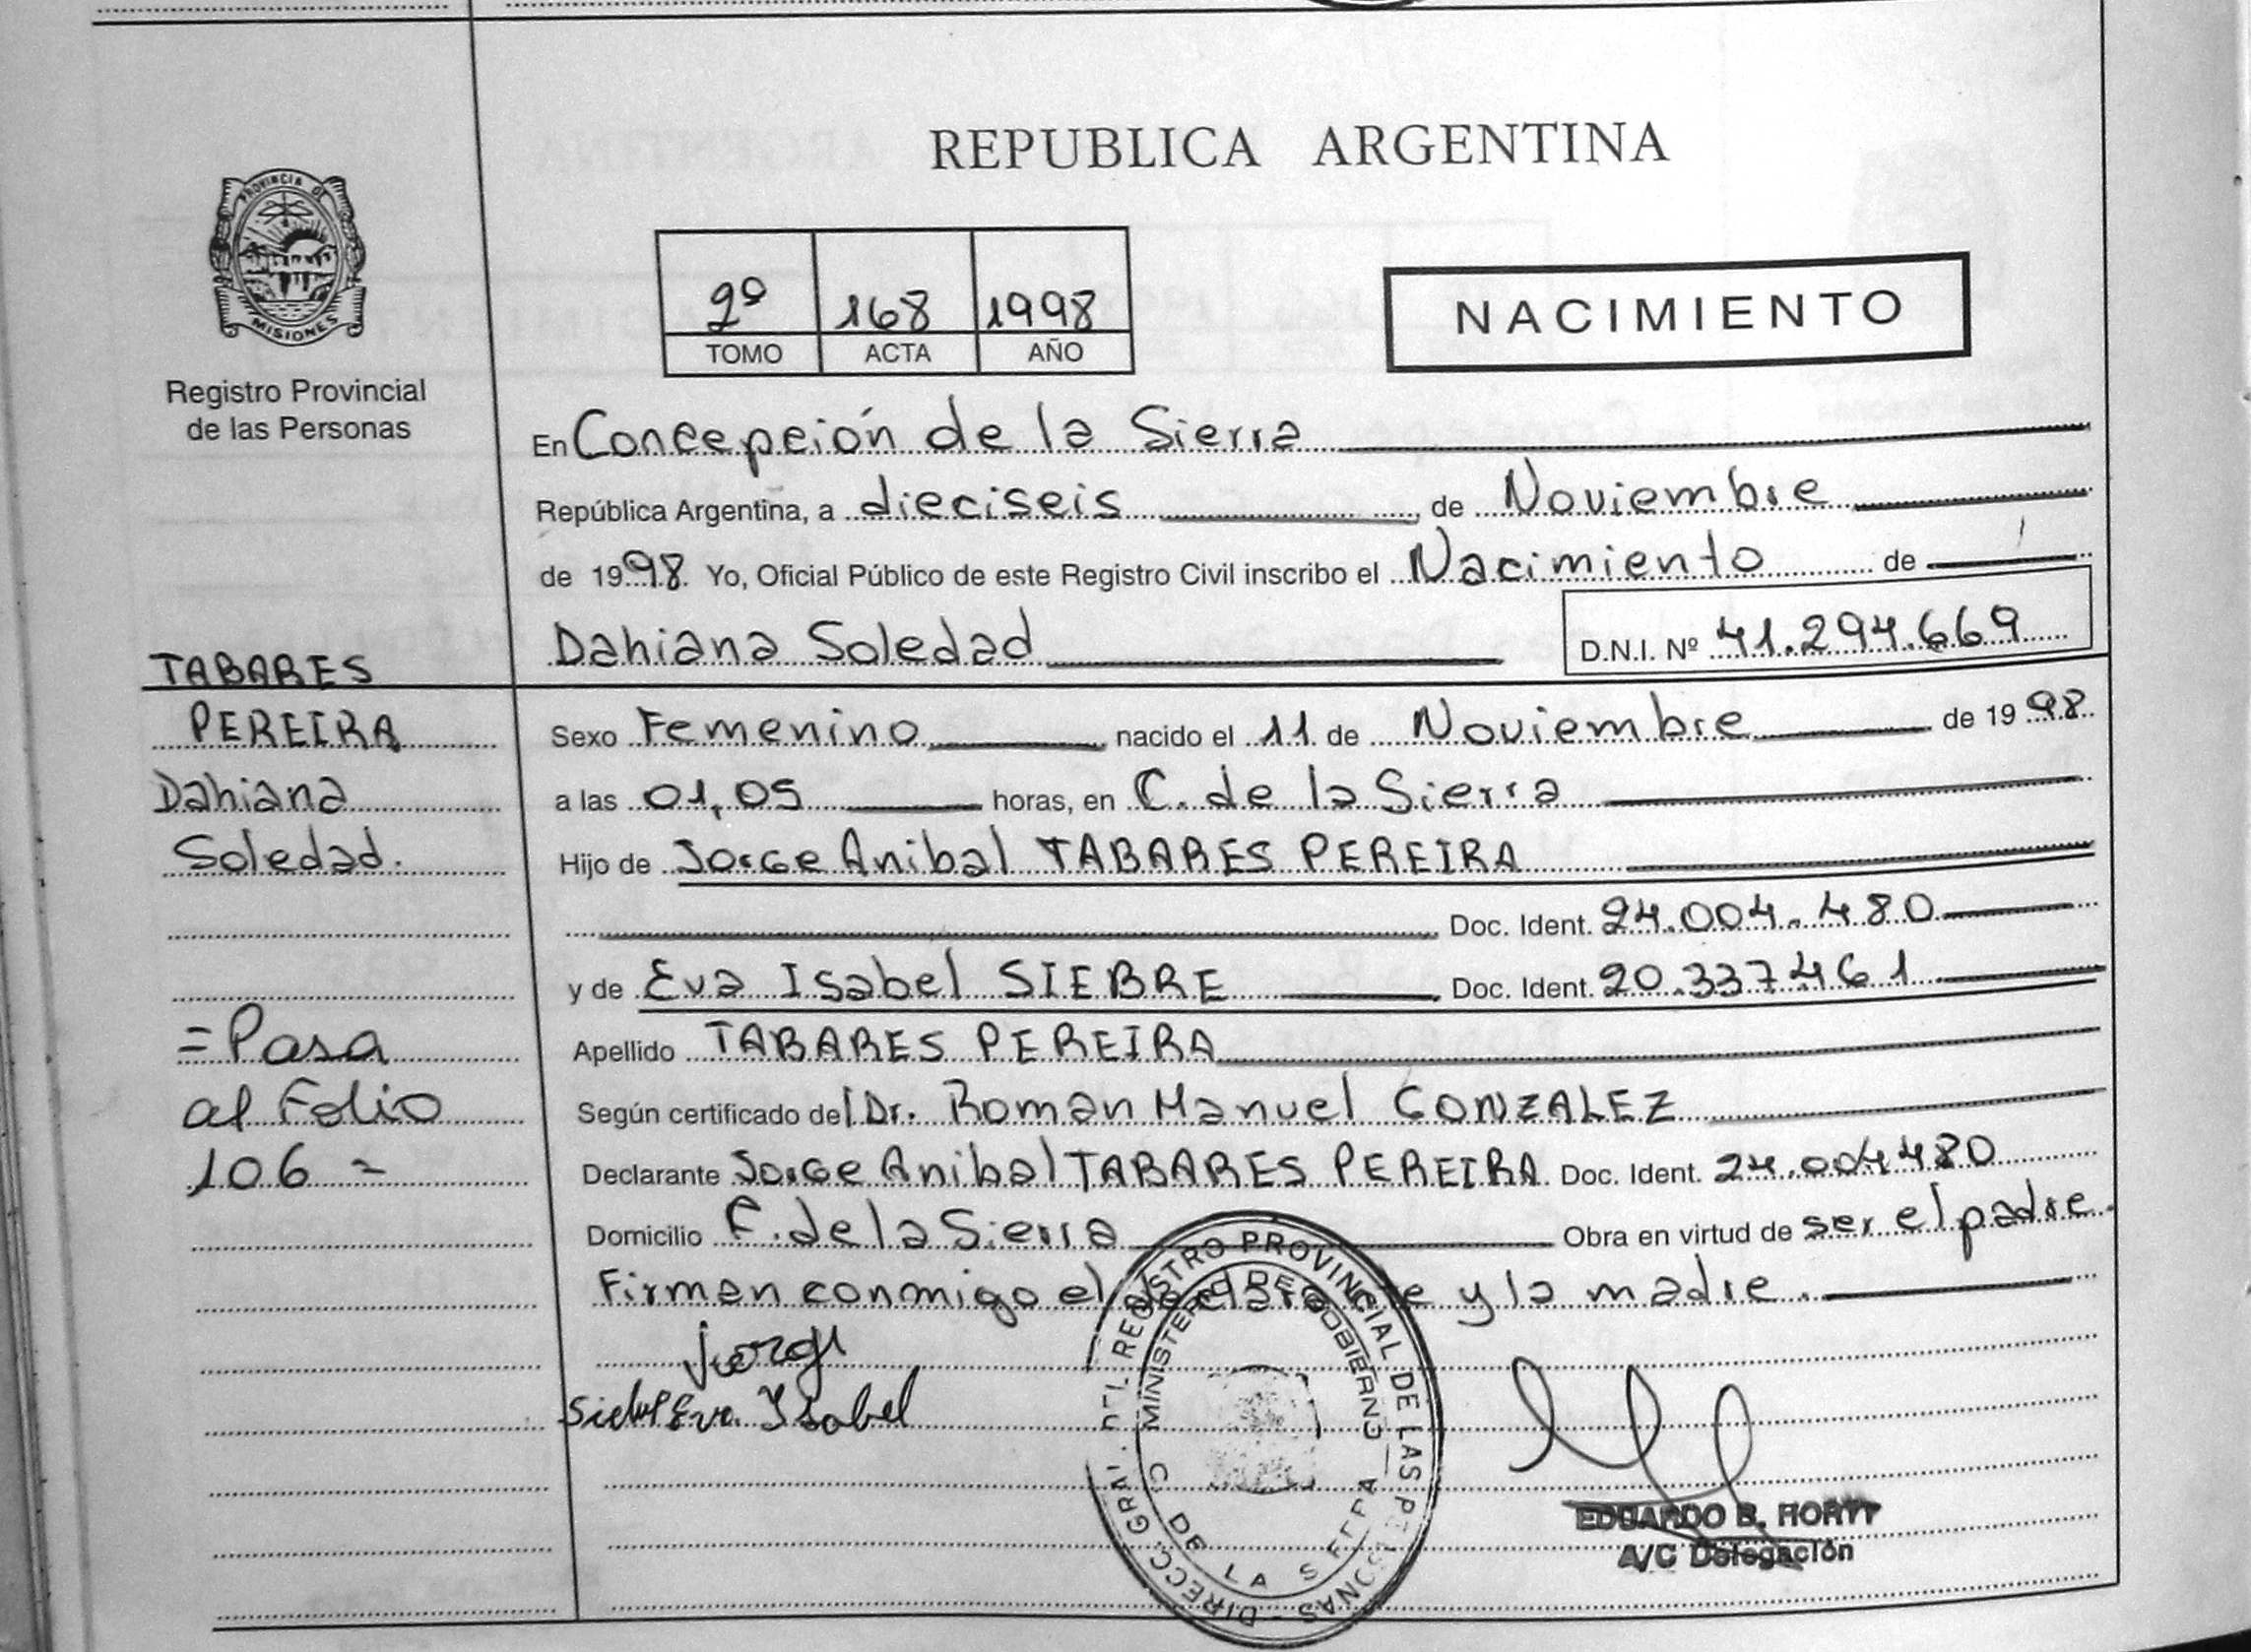 REPUBLICA ARGENTINA
PROVINCIA DE
MISIONES
Registro Provincial
de las Personas
2º 168 1998
TOMO ACTA AÑO
NACIMIENTO
En Concepción de la Sierra
República Argentina, a dieciseis de Noviembre
de 1998. Yo, Oficial Público de este Registro Civil inscribo el Nacimiento de
Dahiana Soledad D.N.I. Nº 41.294.669
TABARES
PEREIRA
Dahiana
Soledad.
=Pasa
al Folio
106 =
Sexo Femenino nacido el 11 de Noviembre de 1998.
a las 01,05 horas, en C. de la Sierra
Hijo de Jorge Anibal TABARES PEREIRA
Doc. Ident. 24.004.480
y de Eva Isabel SIEBRE Doc. Ident. 20.337.461
Apellido TABARES PEREIRA
Según certificado del Dr. Roman Manuel GONZALEZ
Declarante Jorge Anibal TABARES PEREIRA. Doc. Ident. 24.004.480
Domicilio C. de la Sierra Obra en virtud de ser el padre.
Firman conmigo el declarante y la madre.
Jorge
Eva Isabel
DIRECC. GRAL. DEL REGISTRO PROVINCIAL DE LAS PERSONAS
MINISTERIO DE GOBIERNO
C. DE LA SIERRA
EDUARDO B.
A/C Delegación